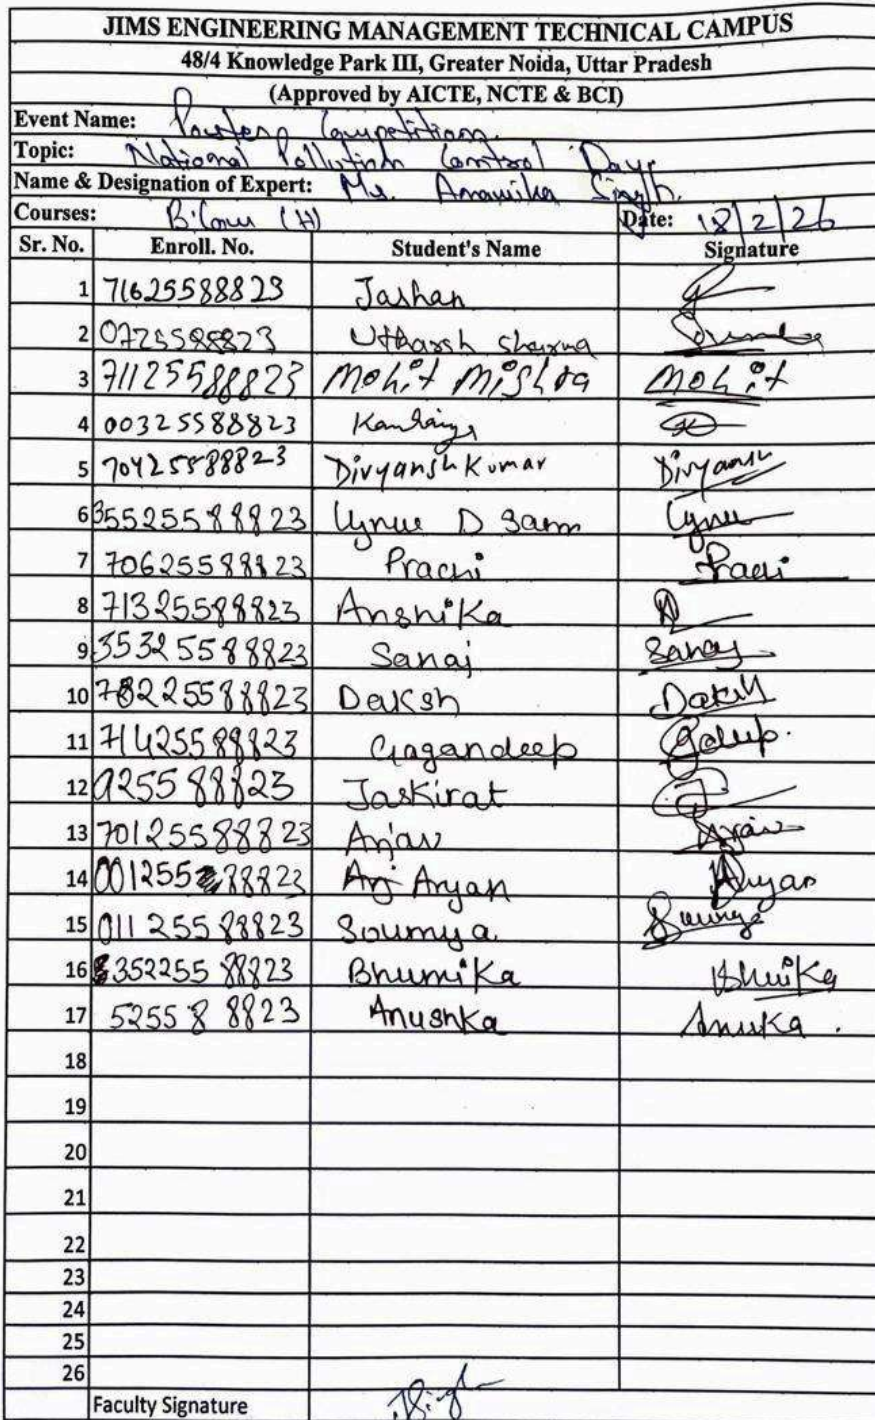 JIMS ENGINEERING MANAGEMENT TECHNICAL CAMPUS
48/4 Knowledge Park III, Greater Noida, Uttar Pradesh
(Approved by AICTE, NCTE & BCI)
Event Name: Competition.
Topic: National Pollution Control Day
Name & Designation of Expert: Ms. Anamika Singh.
Courses: B.Com (H) Date: 18/2/26
Sr. No. Enroll. No. Student's Name Signature
1 71625588823 Jashan
2 0725588823 Utkarsh Sharma
3 71125588823 Mohit Mishra Mohit
4 00325588823
5 70425588823 Divyansh Kumar Divyansh
6 35525588823 D Sam
7 70625588823 Prachi Prachi
8 71325588823 Anshika
9 35325588823 Sanaj Sanaj
10 78225588823 Daksh Daksh
11 71425588823 Gagandeep
12 Jaskirat
13 70125588823
14 00125588823 Aryan Aryan
15 01125588823 Soumya
16 35225588823 Bhumika
17 525588823 Anushka
18
19
20
21
22
23
24
25
26
Faculty Signature